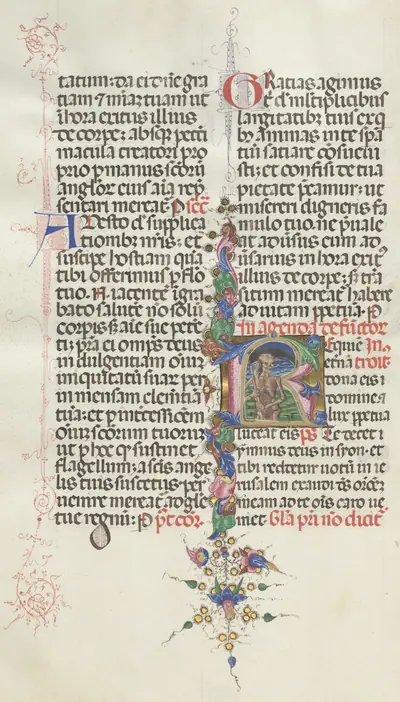 tatum: da ei dñe gra
tiam ⁊ mīaȝ tuam ut
ī hora exitus illius
de corpe: absqȝ petti
macula creatori pro
prio p manus scōrū
anglor̄ eius aīa rep
sentari mereat̄ P secr̄
Adesto dñe supplica
tiōibȝ nr̄is: et
suscipe hostiam quā
tibi offerimus p flo
tuo. N. iacente ī gra
bato salutē nō solū
corpis sȝ aīe sue pete
ti: pta ei omps deus
indulgentiam oīuȝ
iniquitatū suar̄ per
inmensam clemētiā
tuā: et p intercessiōem
oīuȝ scōrum tuorū
ut p hoc q̄ sustinet
flagellum: a scīs ange
lis tuis susceptus per
uenire mereat̄ ad glē
tue regnū: P pt̄ cōr.
Gratias agimus
t̄ dñe m̄ltiplicibus
largitatibȝ tuis ex q
bȝ animas in te spā
tiū satiare cōsueui
sti: et confisi de tua
pietate p̄camur: ut
misereri digneris fa
mulo tuo: ne p̄uale
at aduersus eum ad
uersarius in hora exit̄
illius de corpe: sȝ trā
situm mereat̄ habere
ad uitam ppetuā. P
In agenda defūctor̄
Requiē In
etnā troit
dona eis
domine:
lux ppetua
luceat eis ps Te decet
ymnus deus in syon: et
tibi reddetur uotū in ie
rusalem exaudi dñe or̄em
meam ad te oīs caro ue
niet. Glā pr̄i nō dicit̄